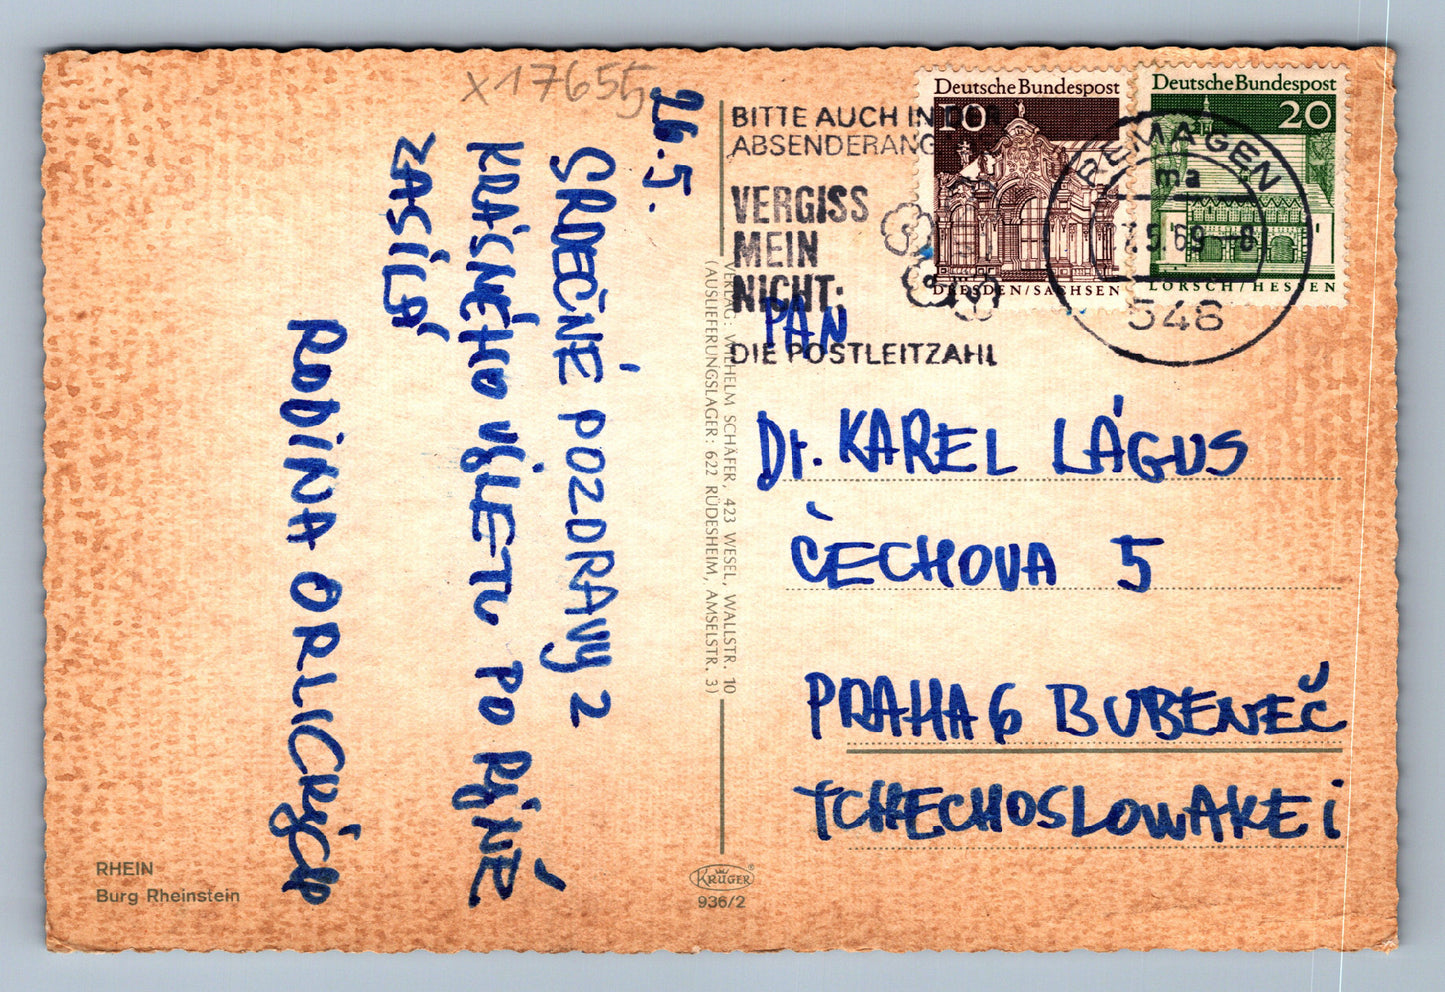 x17655
26.5.
SRDEČNÉ POZDRAVY Z
KRÁSNÉHO VÝLETU PO RÝNĚ
ZASÍLÁ
RODINA ORLICKÝCH
RHEIN
Burg Rheinstein
VERLAG: WILHELM SCHÄFER, 423 WESEL, WALLSTR. 10
(AUSLIEFERUNGSLAGER: 622 RÜDESHEIM, AMSELSTR. 3)
KRÜGER
936/2
BITTE AUCH IN DER
ABSENDERANG
VERGISS
MEIN
NICHT:
DIE POSTLEITZAHL
Deutsche Bundespost
10
DRESDEN/SACHSEN
Deutsche Bundespost
20
LORSCH/HESSEN
REMAGEN
ma
7.5.69-8
548
PAN
Dr. KAREL LÁGUS
ČECHOVA 5
PRAHA 6 BUBENEČ
TCHECHOSLOWAKEI